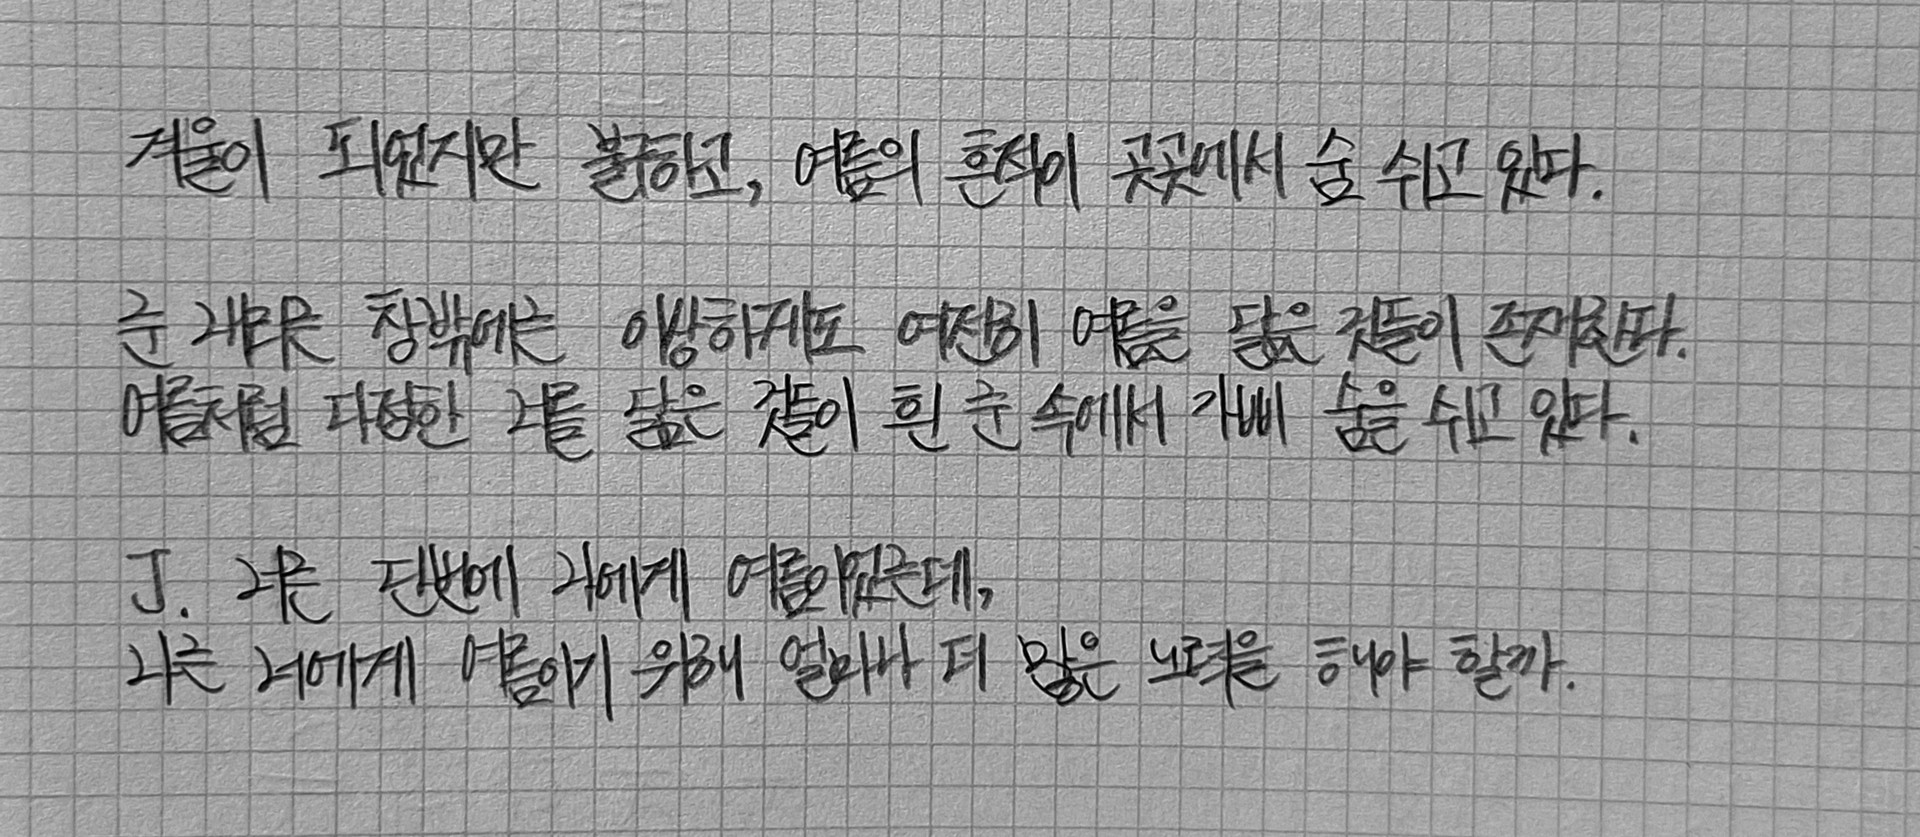 겨울이 되었지만 불구하고, 여름의 흔적이 곳곳에서 숨 쉬고 있다.
눈 내리는 창밖에는 이상하게도 여전히 여름을 닮은 것들이 존재한다.
여름처럼 다정한 너를 닮은 것들이 흰 눈 속에서 가삐 숨을 쉬고 있다.
J. 너는 단번에 나에게 여름이었는데,
나는 너에게 여름이기 위해 얼마나 더 많은 노력을 해야 할까.